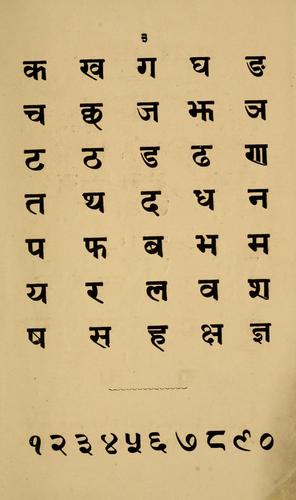 ३
क ख ग घ ङ
च छ ज झ ञ
ट ठ ड ढ ण
त थ द ध न
प फ ब भ म
य र ल व श
ष स ह क्ष ज्ञ
१२३४५६७८९०